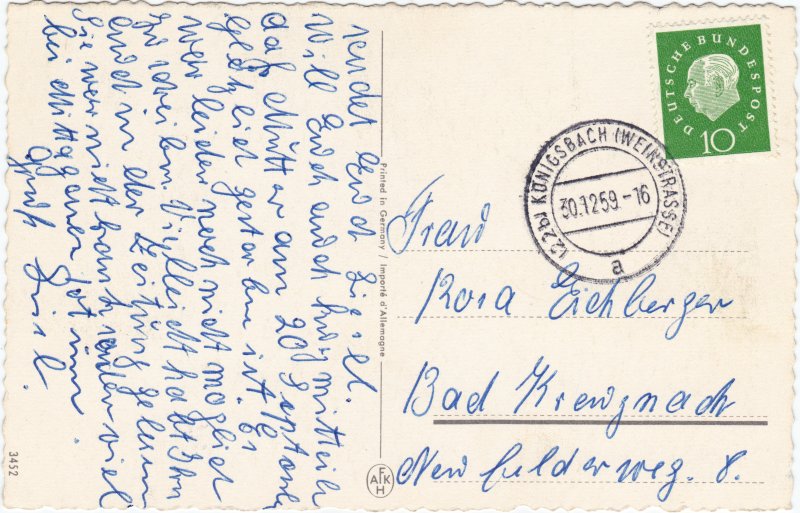 sendet Euch Liesel.
Will Euch auch kurz mitteilen
daß Mutter am 20 September
plötzlich gestorben ist. Es
war leider noch nicht möglich
zu schreiben. Vielleicht habt Ihr
auch in der Zeitung gelesen
Sie war nicht krank viel
bei Mittagessen
Gruß Liesel.
3452
Printed in Germany / Importé d'Allemagne
AFKH
DEUTSCHE BUNDESPOST
10
(22b) KÖNIGSBACH (WEINSTRASSE)
30.12.59-16
a
Frau
Rosa Eichberger
Bad Kreuznach
Neufelderweg. 8.